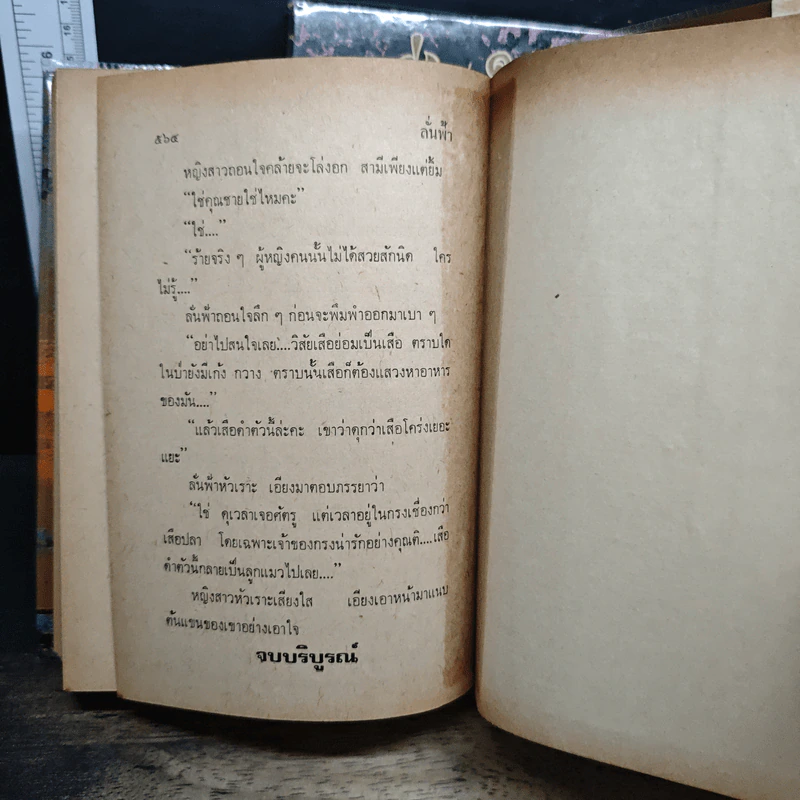 ๕๖๕ ลั่นฟ้า
หญิงสาวถอนใจคล้ายจะโล่งอก สามีเพียงแต่ยิ้ม
“ใช่คุณชายใช่ไหมคะ”
“ใช่....”
“ร้ายจริง ๆ ผู้หญิงคนนั้นไม่ได้สวยสักนิด ใคร
ไม่รู้....”
ลั่นฟ้าถอนใจลึก ๆ ก่อนจะพึมพำออกมาเบา ๆ
“อย่าไปสนใจเลย....วิสัยเสือย่อมเป็นเสือ ตราบใด
ในป่ายังมีเก้ง กวาง ตราบนั้นเสือก็ต้องแสวงหาอาหาร
ของมัน....”
“แล้วเสือดำตัวนี้ล่ะคะ เขาว่าดุกว่าเสือโคร่งเยอะ
แยะ”
ลั่นฟ้าหัวเราะ เอียงมาตอบภรรยาว่า
“ใช่ ดุเวลาเจอศัตรู แต่เวลาอยู่ในกรงเชื่องกว่า
เสือปลา โดยเฉพาะเจ้าของกรงน่ารักอย่างคุณติ....เสือ
ดำตัวนี้กลายเป็นลูกแมวไปเลย....”
หญิงสาวหัวเราะเสียงใส เอียงเอาหน้ามาแนบ
ต้นแขนของเขาอย่างเอาใจ
จบบริบูรณ์